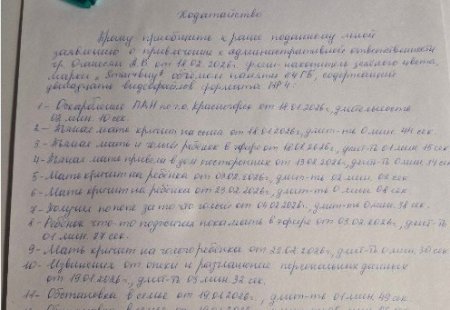 Ходатайство
Прошу приобщить к ранее поданному мной
заявлению о привлечении к административной ответственности
гр. А.В. от 18.02.2026г. флеш-накопитель белого цвета,
марки "Smartbuy" объёмом памяти 64ГБ, содержащий
видеофайлов формата МР4.
1 - Оскорбление ПАН по г.о. Красногорск от 14.01.2026г., длительность
02 мин. 10 сек.
2 - Пьяная мать кричит на сына от 18.01.2026г., длит-ть 0 мин. 44 сек.
3 - Пьяная мать и голый ребёнок в эфире от 10.01.2026г., длит-ть 01 мин. 15 сек
4 - Пьяная мать привела в дом посторонних от 19.02.2026г., длит-ть 0 мин. 14 сек
5 - Мать кричит на ребёнка от 09.02.2026г., длит-ть 02 мин. 02 сек
6 - Мать кричит на ребёнка от 23.02.2026г., длит-ть 0 мин. 08 сек
7 - по попе за то что голый от 06.02.2026г., длит-ть 0 мин. 38 сек.
8 - Ребёнок что-то пока мать в эфире от 03.02.2026г., длит-ть
01 мин. 27 сек.
9 - Мать кричит на голого ребёнка от 22.02.2026г., длит-ть 0 мин. 30 сек
10 - от опеки и разглашение персональных данных
от 19.01.2026г., длит-ть 03 мин. 32 сек.
11 - Обстановка в семье от 19.01.2026г., длит-ть 01 мин. 49 сек.